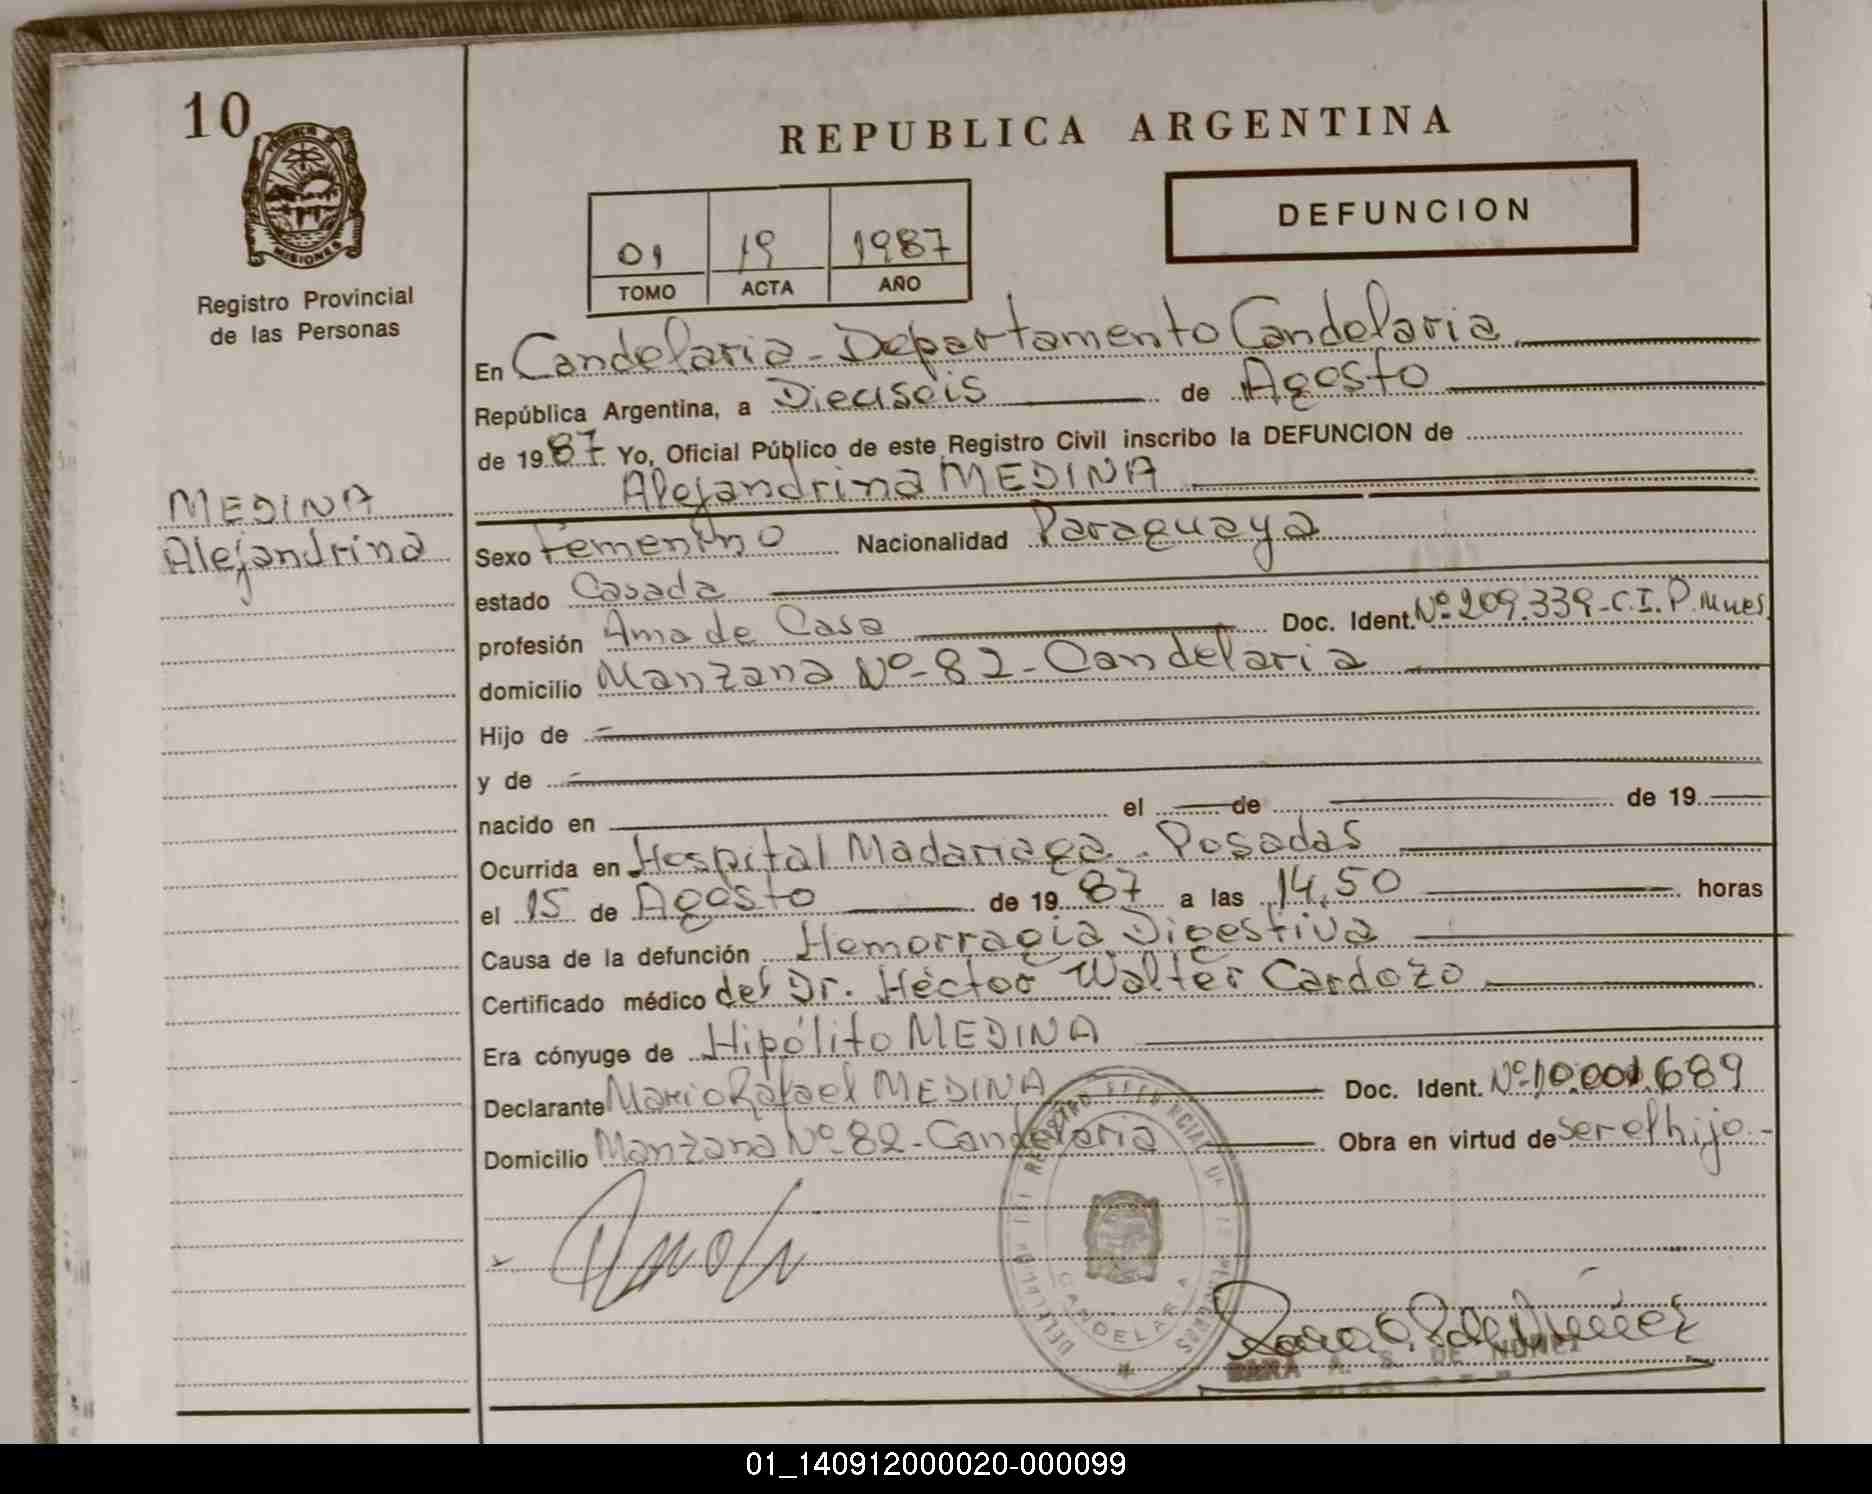 10
REPUBLICA ARGENTINA
DEFUNCION
MISIONES
Registro Provincial
de las Personas
01 19 1987
TOMO ACTA AÑO
En Candelaria - Departamento Candelaria
República Argentina, a Dieciseis de Agosto
de 1987 Yo, Oficial Público de este Registro Civil inscribo la DEFUNCION de
Alejandrina MEDINA
MEDINA
Alejandrina
Sexo Femenino Nacionalidad Paraguaya
estado Casada
profesión Ama de Casa Doc. Ident. Nº 209.339 - C.I.P. Mnes
domicilio Manzana Nº - 82 - Candelaria
Hijo de
y de
nacido en el de de 19
Ocurrida en Hospital Madariaga - Posadas
el 15 de Agosto de 1987 a las 14,50 horas
Causa de la defunción Hemorragia Digestiva
Certificado médico del Dr. Héctor Walter Cardozo
Era cónyuge de Hipólito MEDINA
Declarante Mario Rafael MEDINA Doc. Ident. Nº 10.001.689
Domicilio Manzana Nº 82 - Candelaria Obra en virtud de ser el hijo.-
CANDELARIA
SARA A. S. DE NUÑEZ
01_140912000020-000099